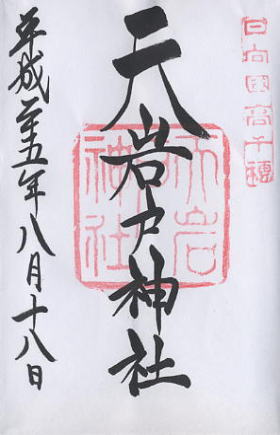 日向国高千穂
天岩戸神社
天岩神社
平成二十五年八月十八日